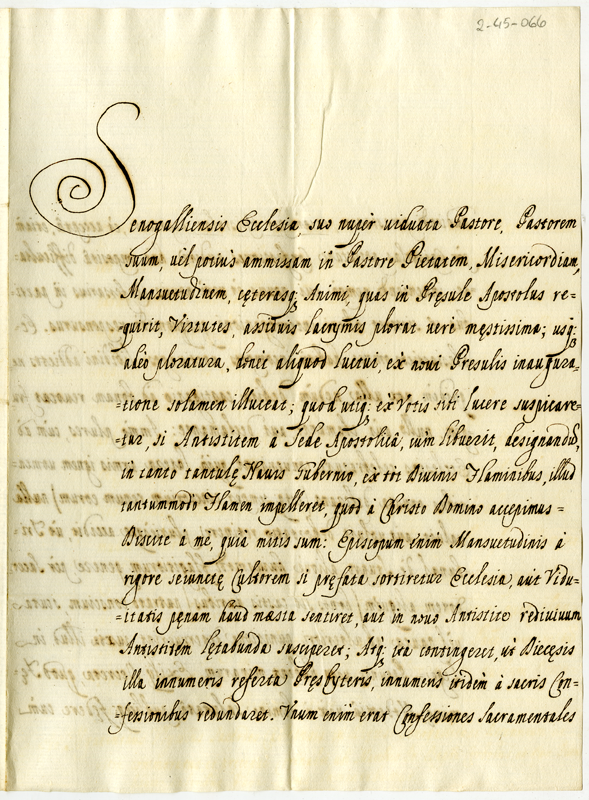 2-45-066
Senogalliensis Ecclesia, suo nupèr uiduata Pastore, Pastorem
suum, uèl potiùs ammissam in Pastore Pietatem, Misericordiam,
Mansuetudinem, cęterasq; Animi, quas in Pręsule Apostolus re=
quirit, Virtutes, assiduis lacrymis plorat uerè męstissima; usq;
adeò ploratura, donèc aliquod luctui, ex noui Presulis inaugura=
=tione solamen illuceat; quod utiq; ex Votis sibi lucere suspicare=
=tur, si Antistitem à Sede Apostolicâ, cùm libuerit, designandũ,
in tanto tantulę Nauis Gubernio, ex tòt Diuinis Flaminibus, illud
tantummodò Flamen impelleret, quod à Christo Domino accepimus=
Discite à mè, quià mitis sum: Episcopum enim Mansuetudinis à
rigore seiunctę Cultorem si pręfata sortiretur Ecclesia, aùt Vidu=
=itatis pęnam haùd mæsta sentiret, aùt in nouo Antistite rediuiuum
Antistitem lętabunda susciperet; Atq; ità contingeret, ùt Diecęsis
illa innumeris referta Pręsbyteris, innumeris itidèm à sacris Con=
=fessionibus redundaret. Vnum enim erat Confessiones Sacramentales